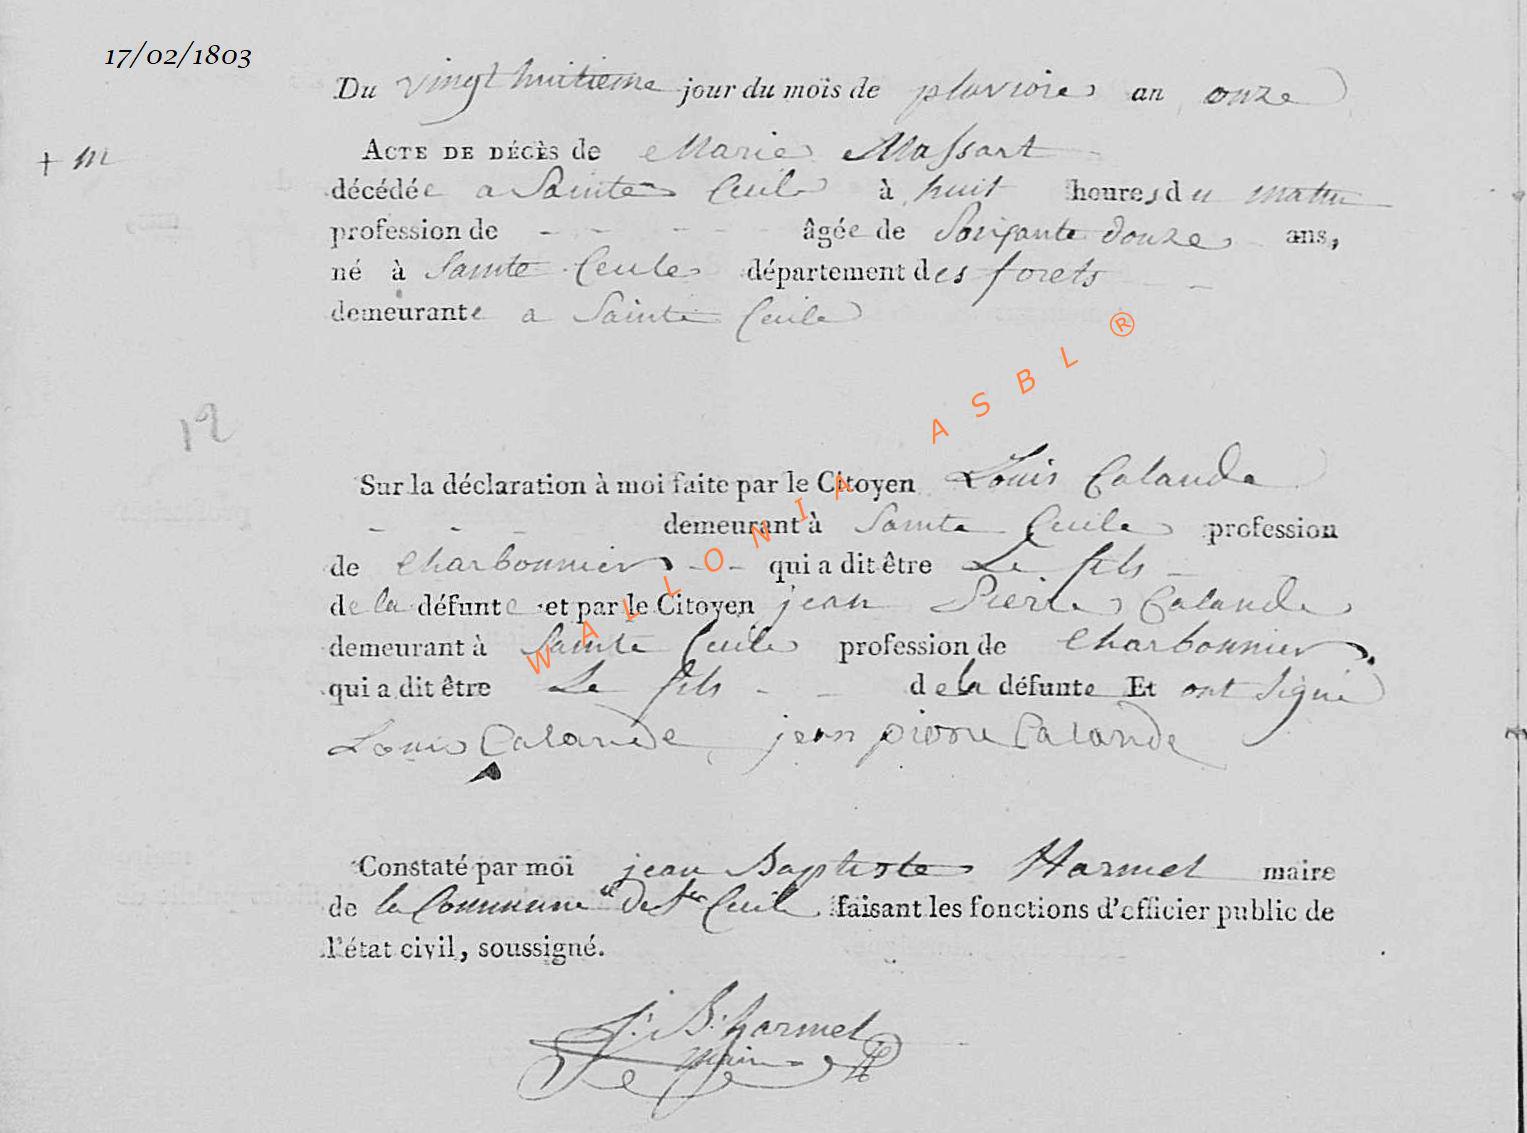 17/02/1803
Du vingt huitieme jour du mois de pluviose an onze
+ m
ACTE DE DÉCÈS de Marie Massart
décédée a Sainte Cecile à huit heures du matin
profession de - - - - - âgée de Soixante douze ans,
né à Sainte Cecile département des forets
demeurante a Sainte Cecile
12
Sur la déclaration à moi faite par le Citoyen Louis Calande
- - - demeurant à Sainte Cecile profession
de Charbonnier - - qui a dit être Le fils -
de la défunte et par le Citoyen jean Pierre Calande
demeurant à Sainte Cecile profession de Charbonnier
qui a dit être Le fils - - de la défunte Et ont Signé
Louis Calande jean pierre Calande
Constaté par moi jean Baptiste Harmel maire
de la Commune de Ste Cecile faisant les fonctions d'officier public de
l'état civil, soussigné.
J. B. harmel
maire
WALLONIA ASBL ®